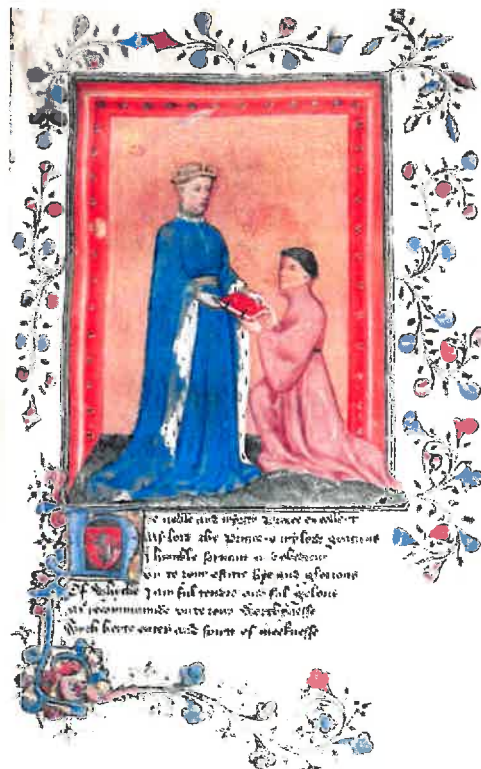 noble and myghty Prince excellent
My lord the Prince o my lord gracious
I humble seruant
on to your estate hye and glorious
Of whiche I am ful tendre and ful gelous
me recommande vnto your worthynesse
With herte enter and spirit of meeknesse